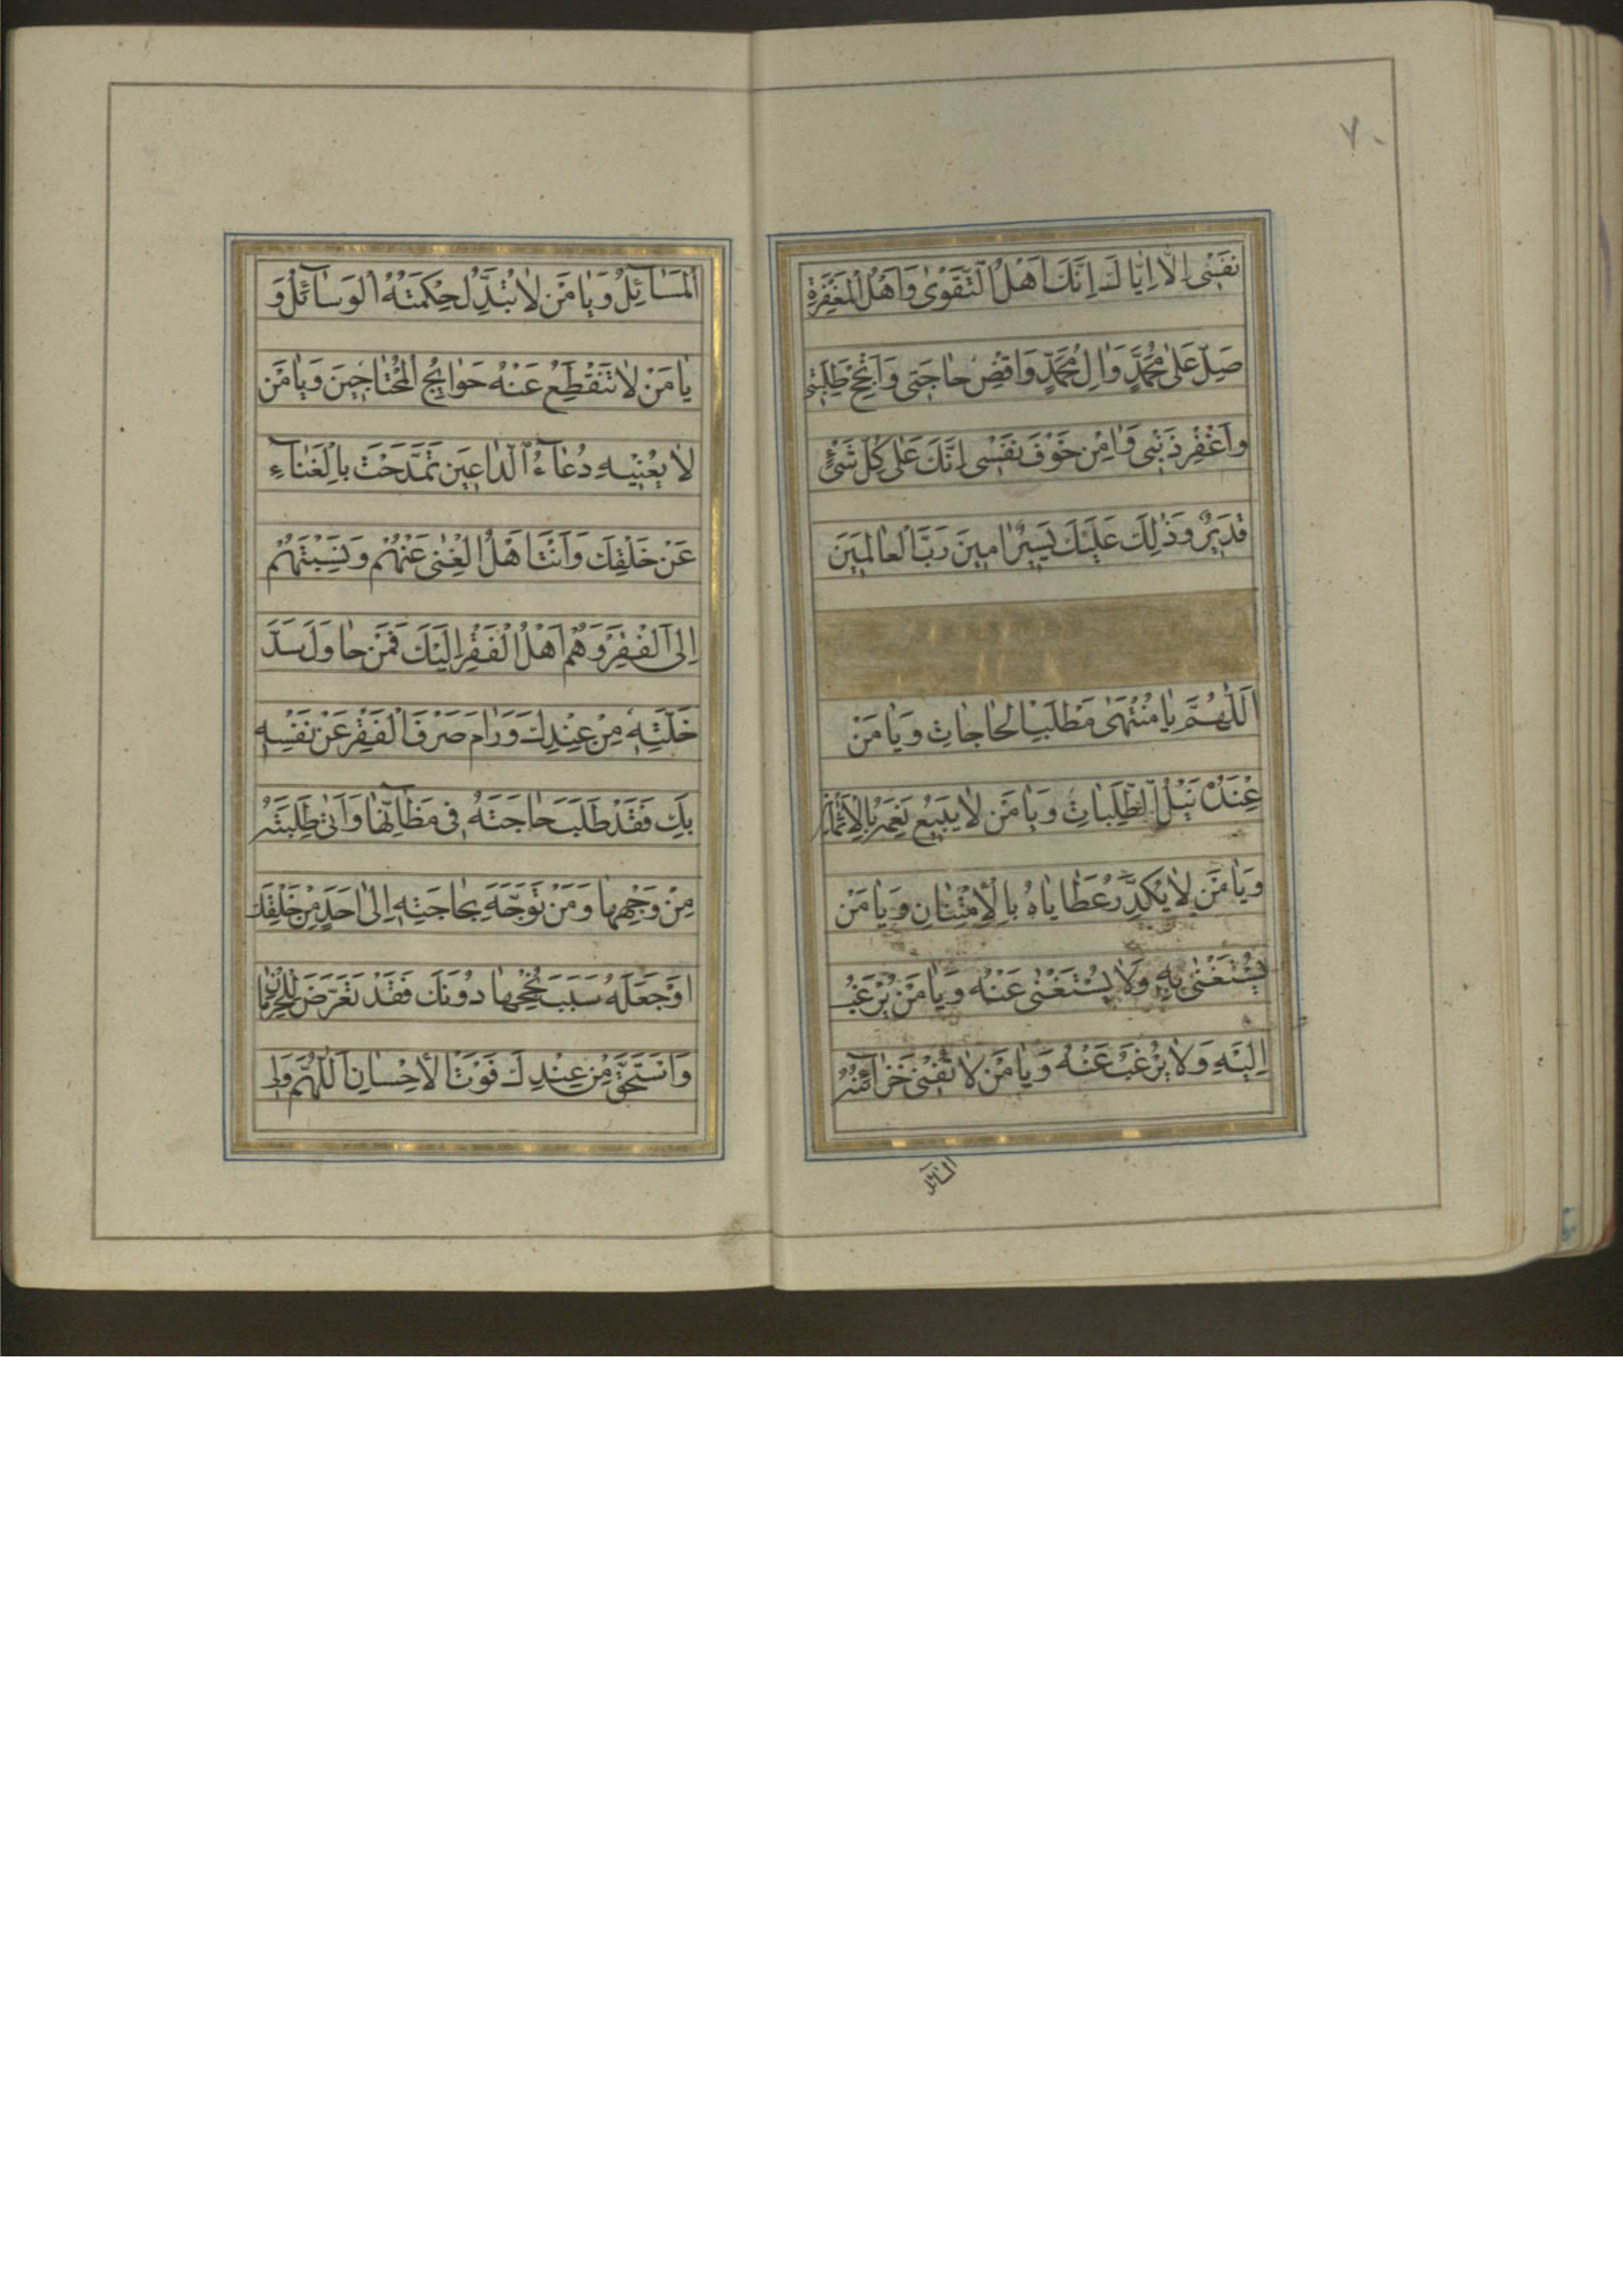 ٧٠
نَفْسٖى اِلّا اِيّا لَكَ اِنَّكَ اَهْلُ التَّقْوٰى وَاَهْلُ الْمَغْفِرَةِ
صَلِّ عَلٰى مُحَمَّدٍ وَاٰلِ مُحَمَّدٍ وَاقْضِ حاجَتٖى وَاَنْجِحْ طَلِبَتٖى
وَاغْفِرْ ذَنْبٖى وَاٰمِنْ خَوْفَ نَفْسٖى اِنَّكَ عَلٰى كُلِّ شَىْءٍ
قَدٖيرٌ وَذٰلِكَ عَلَيْكَ يَسٖيرٌ اٰمٖينَ رَبَّ الْعالَمٖينَ
اَللّٰهُمَّ يا مُنْتَهٰى مَطْلَبِ الْحاجاتِ وَيا مَنْ
عِنْدَهُ نَيْلُ الطَّلِباتِ وَيا مَنْ لا يَبٖيعُ نِعَمَهُ بِالْاَثْمانِ
وَيا مَنْ لا يُكَدِّرُ عَطاياهُ بِالْاِمْتِنانِ وَيا مَنْ
يُسْتَغْنٰى بِهٖ وَلا يُسْتَغْنٰى عَنْهُ وَيا مَنْ يُرْغَبُ
اِلَيْهِ وَلا يُرْغَبُ عَنْهُ وَيا مَنْ لا تُفْنٖى خَزآئِنَهُ
المسآئل
الْمَسآئِلُ وَيا مَنْ لا تُبَدِّلُ حِكْمَتَهُ الْوَسآئِلُ وَ
يا مَنْ لا تَنْقَطِعُ عَنْهُ حَوآئِجُ الْمُحْتاجٖينَ وَيا مَنْ
لا يُعْنٖيهِ دُعآءُ الدّاعٖينَ تَمَدَّحْتَ بِالْغَنآءِ
عَنْ خَلْقِكَ وَاَنْتَ اَهْلُ الْغِنٰى عَنْهُمْ وَنَسَبْتَهُمْ
اِلَى الْفَقْرِ وَهُمْ اَهْلُ الْفَقْرِ اِلَيْكَ فَمَنْ حاوَلَ سَدَّ
خَلَّتِهٖ مِنْ عِنْدِكَ وَرامَ صَرْفَ الْفَقْرِ عَنْ نَفْسِهٖ
بِكَ فَقَدْ طَلَبَ حاجَتَهُ فٖى مَظآنِّها وَاَتٰى طَلِبَتَهُ
مِنْ وَجْهِها وَمَنْ تَوَجَّهَ بِحاجَتِهٖ اِلٰى اَحَدٍ مِنْ خَلْقِكَ
اَوْ جَعَلَهُ سَبَبَ نُجْحِها دُونَكَ فَقَدْ تَعَرَّضَ لِلْحِرْمانِ
وَاسْتَحَقَّ مِنْ عِنْدِكَ فَوْتَ الْاِحْسانِ اَللّٰهُمَّ وَلٖى